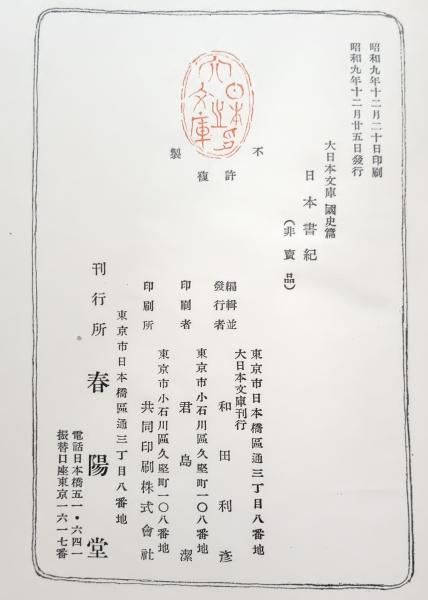 昭和九年十二月二十日印刷
昭和九年十二月廿五日發行
大日本文庫 國史篇
日本書紀
(非賣品)
不許複製
編輯並發行者
東京市日本橋區通三丁目八番地
大日本文庫刊行
和田利彥
印刷者
東京市小石川區久堅町一〇八番地
君島潔
印刷所
東京市小石川區久堅町一〇八番地
共同印刷株式會社
東京市日本橋區通三丁目八番地
刊行所 春陽堂
電話日本橋五一・六四一
振替口座東京一六一七番